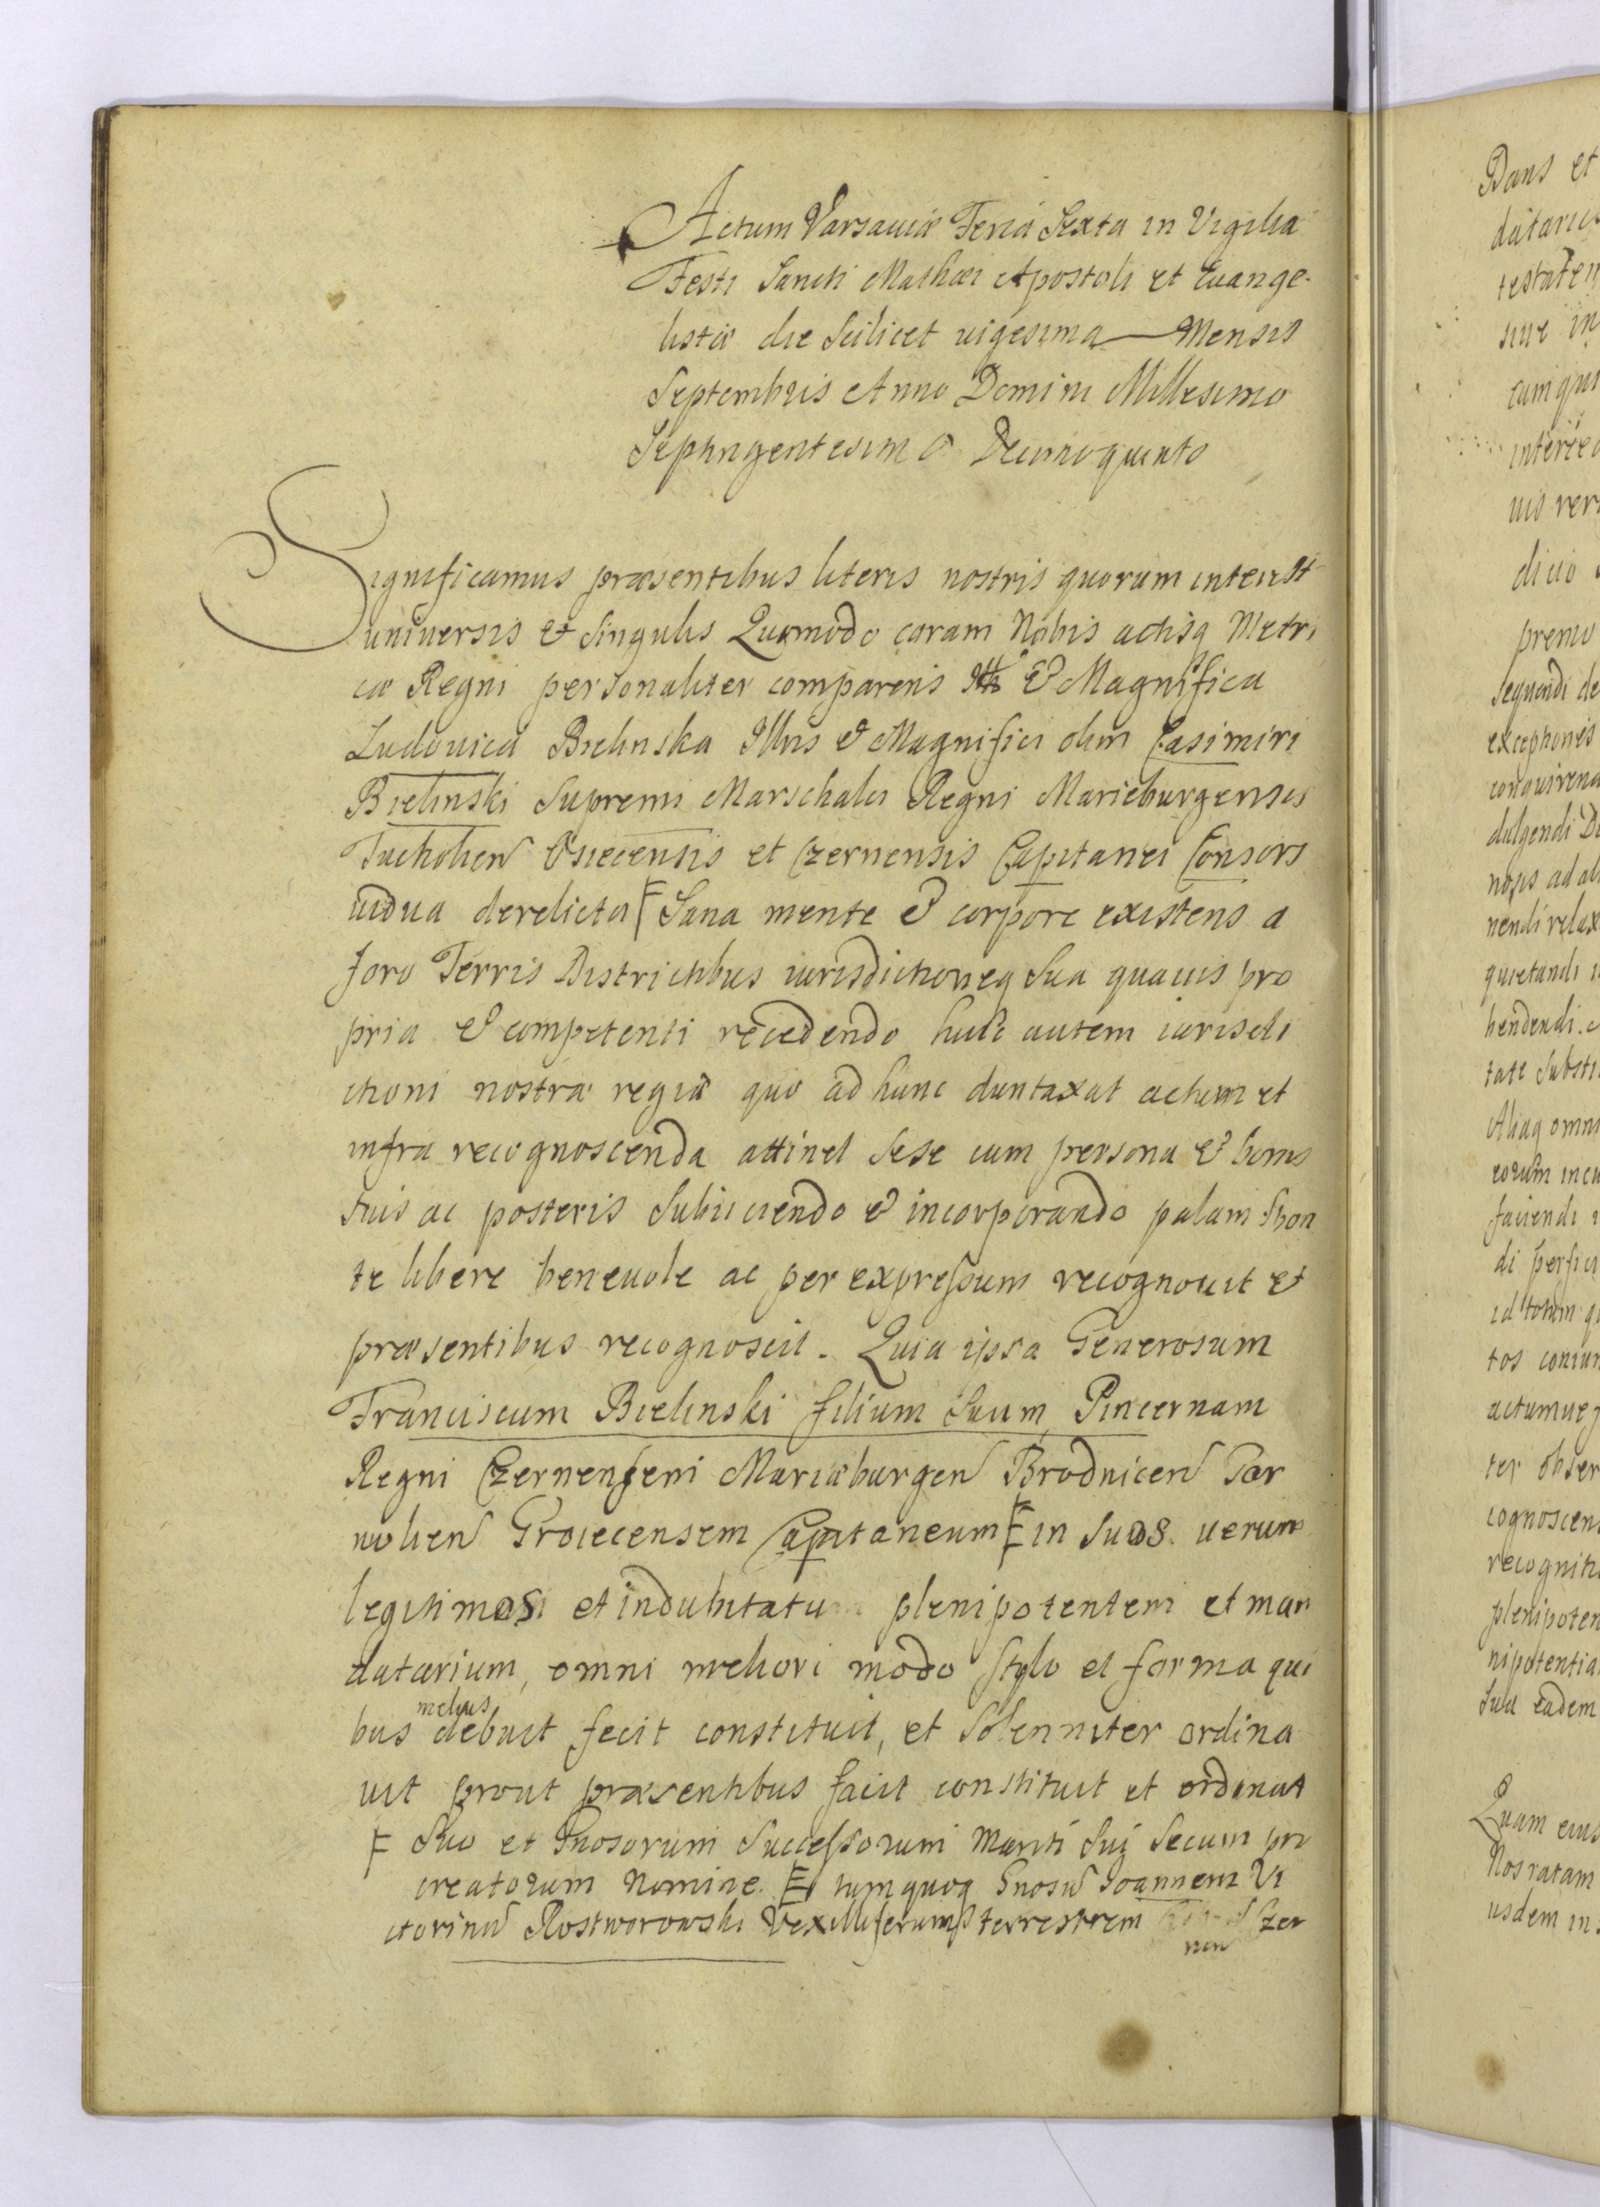 Actum Varsaviæ Feria Sexta in Vigilia
Festi Sancti Mathæi Apostoli et Euange-
listæ die Scilicet uigesima Mensis
Septembris Anno Domini Millesimo
Septingentesimo Decimoquinto
Significamus præsentibus literis nostris quorum interest
universis & Singulis Quomodo coram Nobis actisq Metri
cæ Regni personaliter comparens & Magnifica
Ludouica Bielinska Illris & Magnifici olim Casimiri
Bielinski Supremi Marschalci Regni Marieburgensis
Tucholien Osiecensis et Czernensis Capitanei Consors
uidua derelicta Sana mente & corpore existens a
foro Terris Districtibus iurisdictioneq Sua quauis pro
pria & competenti recedendo huic autem iurisdi
ctioni nostræ regiæ quo ad hunc duntaxat actum et
infra recognoscenda attinet Sese cum persona & bonis
Suis ac posteris Subiiciendo & incorporando palam Spon
te libere beneuole ac per expressum recognouit et
præsentibus recognoscit. Quia ipsa Generosum
Franciscum Bielinski filium Suum Pincernam
Regni Czernensem Mariæburgen Brodnicen Gar
wolien Groiecensem Capitaneum in Suos uerum
legitimos et indubitatum plenipotentem et man
datarium, omni meliori modo Stylo et forma qui
melius
bus debuit fecit constituit, et Solenniter ordina
uit prout præsentibus facit constituit et ordinat
Suo et Gnosorum Successorum Mariti Sui Secum pro
creatorum Nomine. tum quoq Gnosu Joannem Vi
ctorinu Rostworowski Vexilliferum terrestrem Czer
nen
Dans et
datariis
testatem
siue in
cumque
interce
uis ver
dicio
premo
Sequendi de
exceptiones
conquirend
dulgendi De
noxis ad al
nendi relax
quietandi
hendendi
tate Substi
Aliaq omni
eorum incu
faciendi
di perfici
id totum q
tos coniun
actumue
ter obser
cognoscen
recogniti
plenipoten
nipotentia
Sua eadem
Quam eius
Nos ratam
usdem in